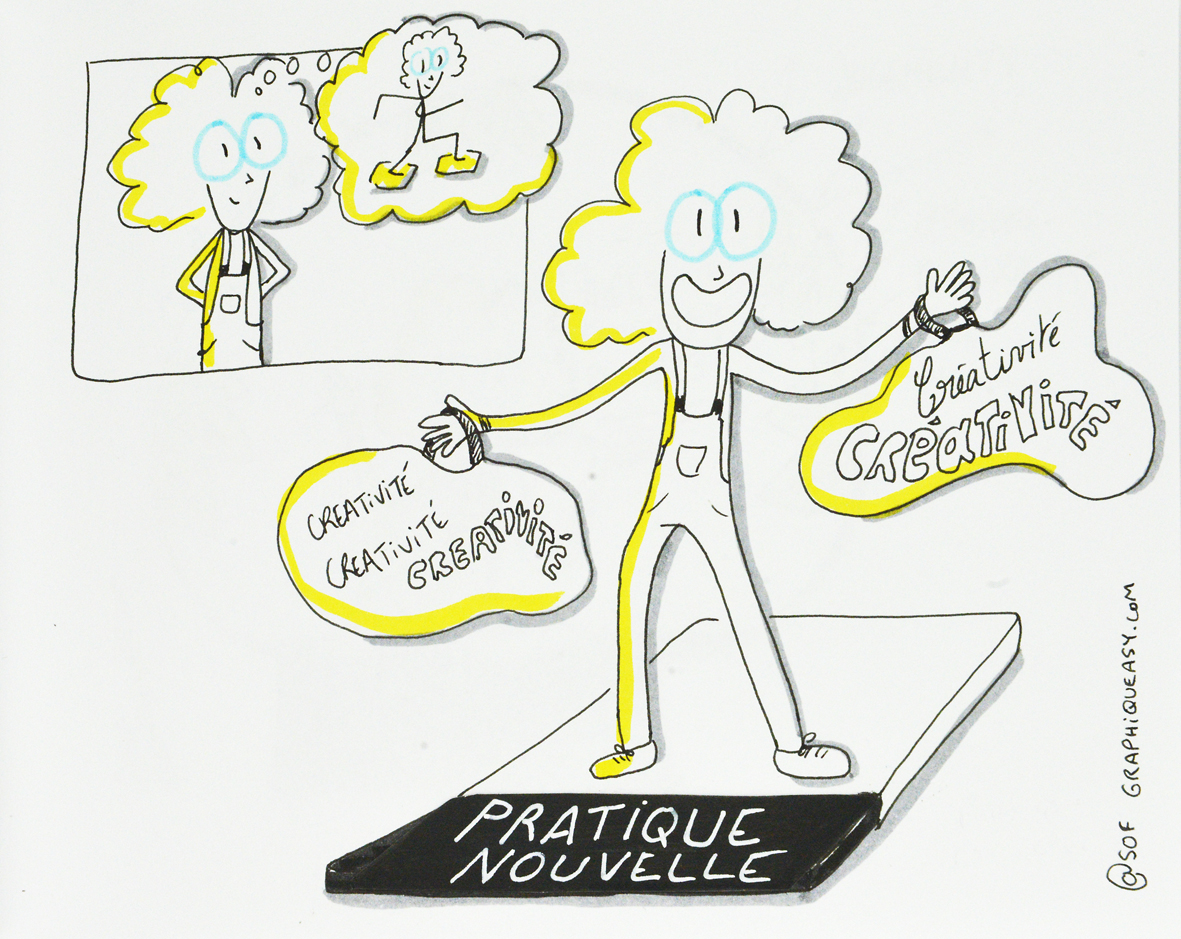 Créativité
CRéATiViTÉ
CREATiViTÉ
CREATiViTÉ
CREATiViTÉ
PRATiQUE
NOUVELLE
@SOF GRAPHiQUEASY.COM